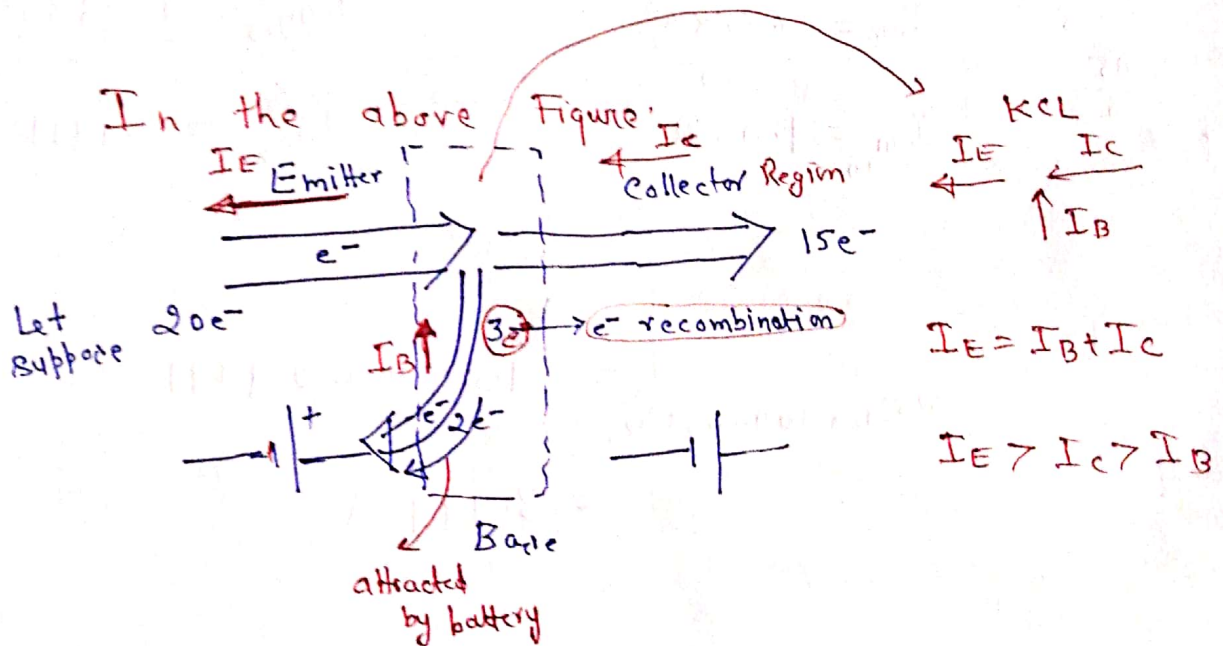 In the above Figure:
KCL
IE
Emitter
IC
Collector Region
IE
IC
IB
e-
15e-
Let suppose
20e-
IB
3e-
e- recombination
IE = IB + IC
+
e-
2e-
IE > IC > IB
Base
attracted
by battery